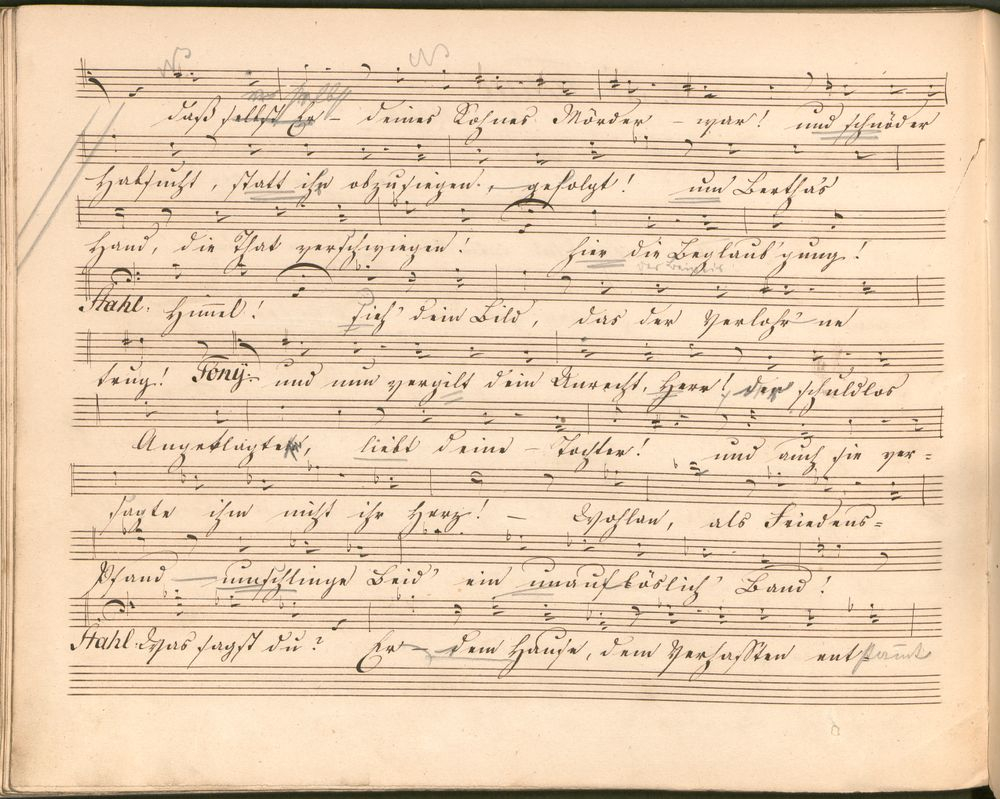 daß selbst Er – deines Sohnes Mörder – war! und schnöder
Habsucht, statt ihr obzusiegen, – gefolgt! um Bertha's
Hand, die That verschwiegen! hier die Beglaub'gung!
Stahl. Himmel! Sieh' dein Bild, das der Verlohr'ne
trug! Tony. und nun vergilt dein Unrecht, Herr! der schuldlos
Angeklagte, liebt deine – Tochter! und auch sie ver-=
sagte ihm nicht ihr Herz! – Wohlan, als Friedens=
Pfand – umschlinge Beid' ein unauflöslich' Band!
Stahl. Was sagst du? Er – dem Hause, dem Verhassten entstammt